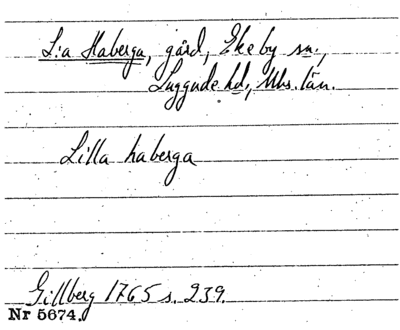 L:a Haberga, gård, Ekeby sn.,
Luggude hd., Mhs. län.
Lilla haberga
Gillberg 1765 s. 239.
Nr 5674.